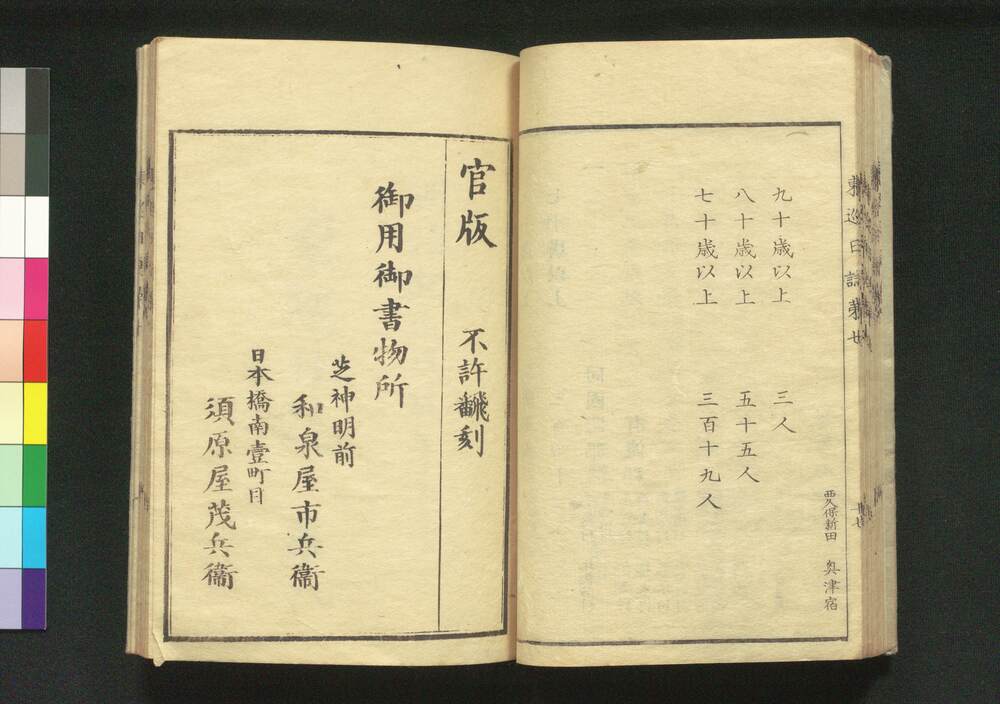 東巡日誌第廿
廿七
西久保新田　奥津宿
九十歳以上　三人
八十歳以上　五十五人
七十歳以上　三百十九人
官版　不許翻刻
御用御書物所
芝神明前
和泉屋市兵衞
日本橋南壹町目
須原屋茂兵衞